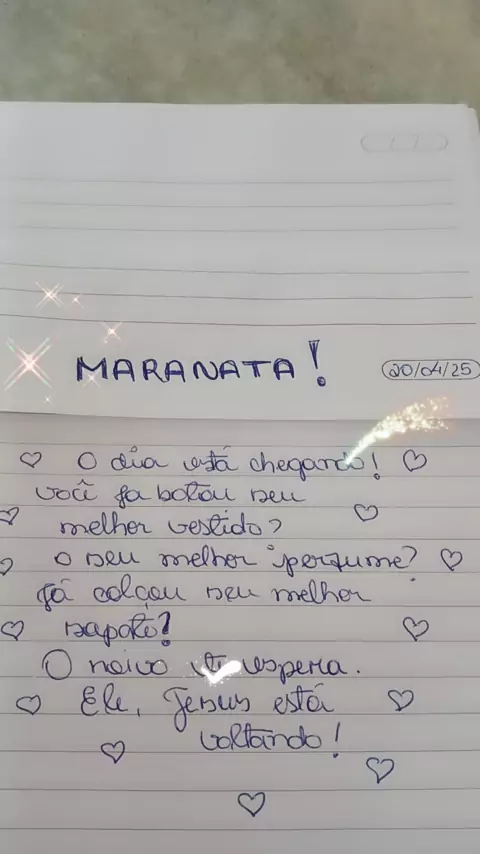 MARANATA!
20/04/25
O dia está chegando!
Você já botou seu
melhor vestido?
O seu melhor perfume?
Já calçou seu melhor
sapato?
O noivo te espera.
Ele, Jesus está
voltando!